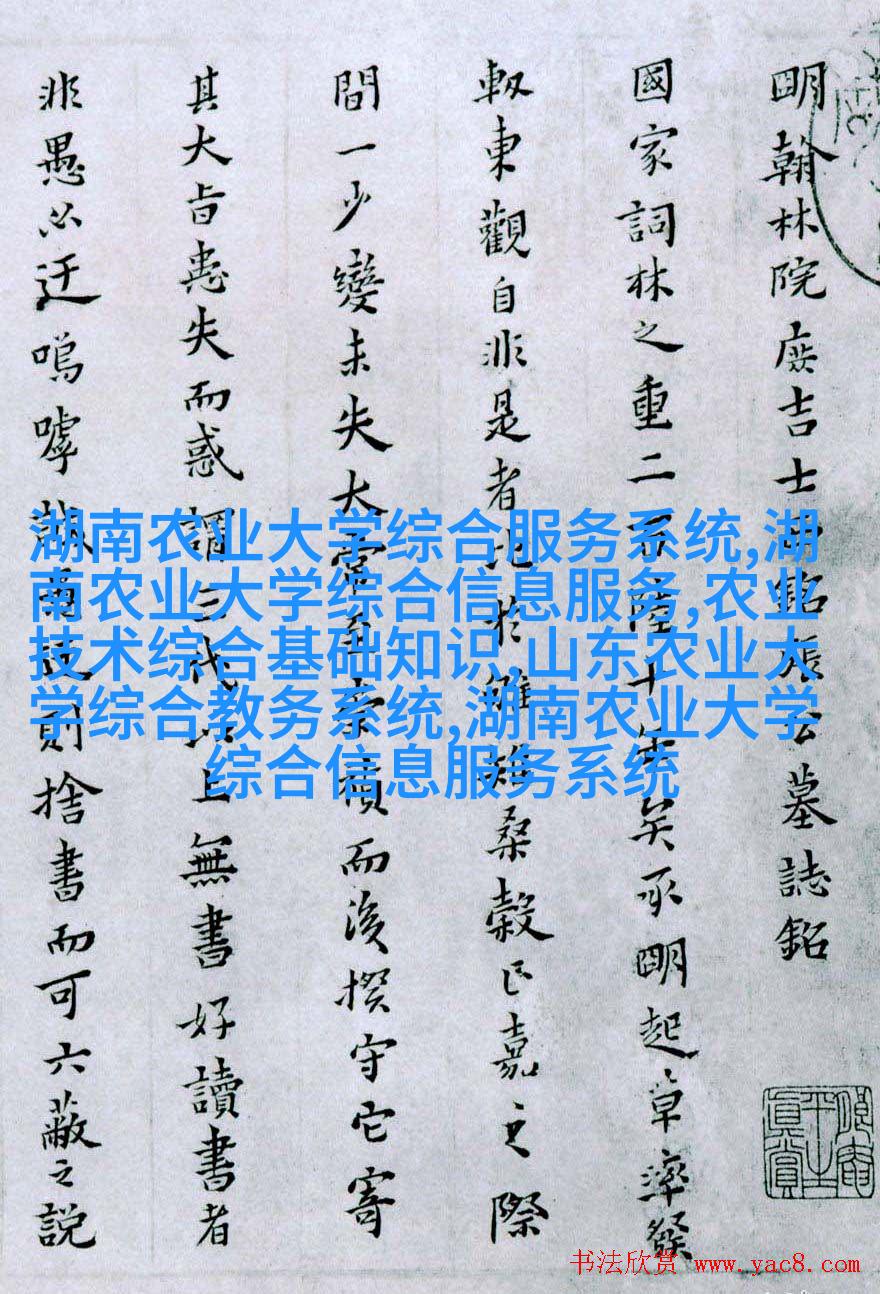 明翰林院庶吉士西銘張公墓誌銘
國家詞林之重二百陸十年矣承明起草率發
軔東觀自非是者比於雊雉桑穀正嘉之際
間一少變未失大常至崇禎而後揆守它寄
其大旨患失而惑謂三代以上無書好讀書者
非愚必迂嗚嘑誠則捨書而可六蔽之説
湖南农业大学综合服务系统,湖
南农业大学综合信息服务,农业
技术综合基础知识,山东农业大
学综合教务系统,湖南农业大学
综合信息服务系统
书法欣赏 www.yac8.com